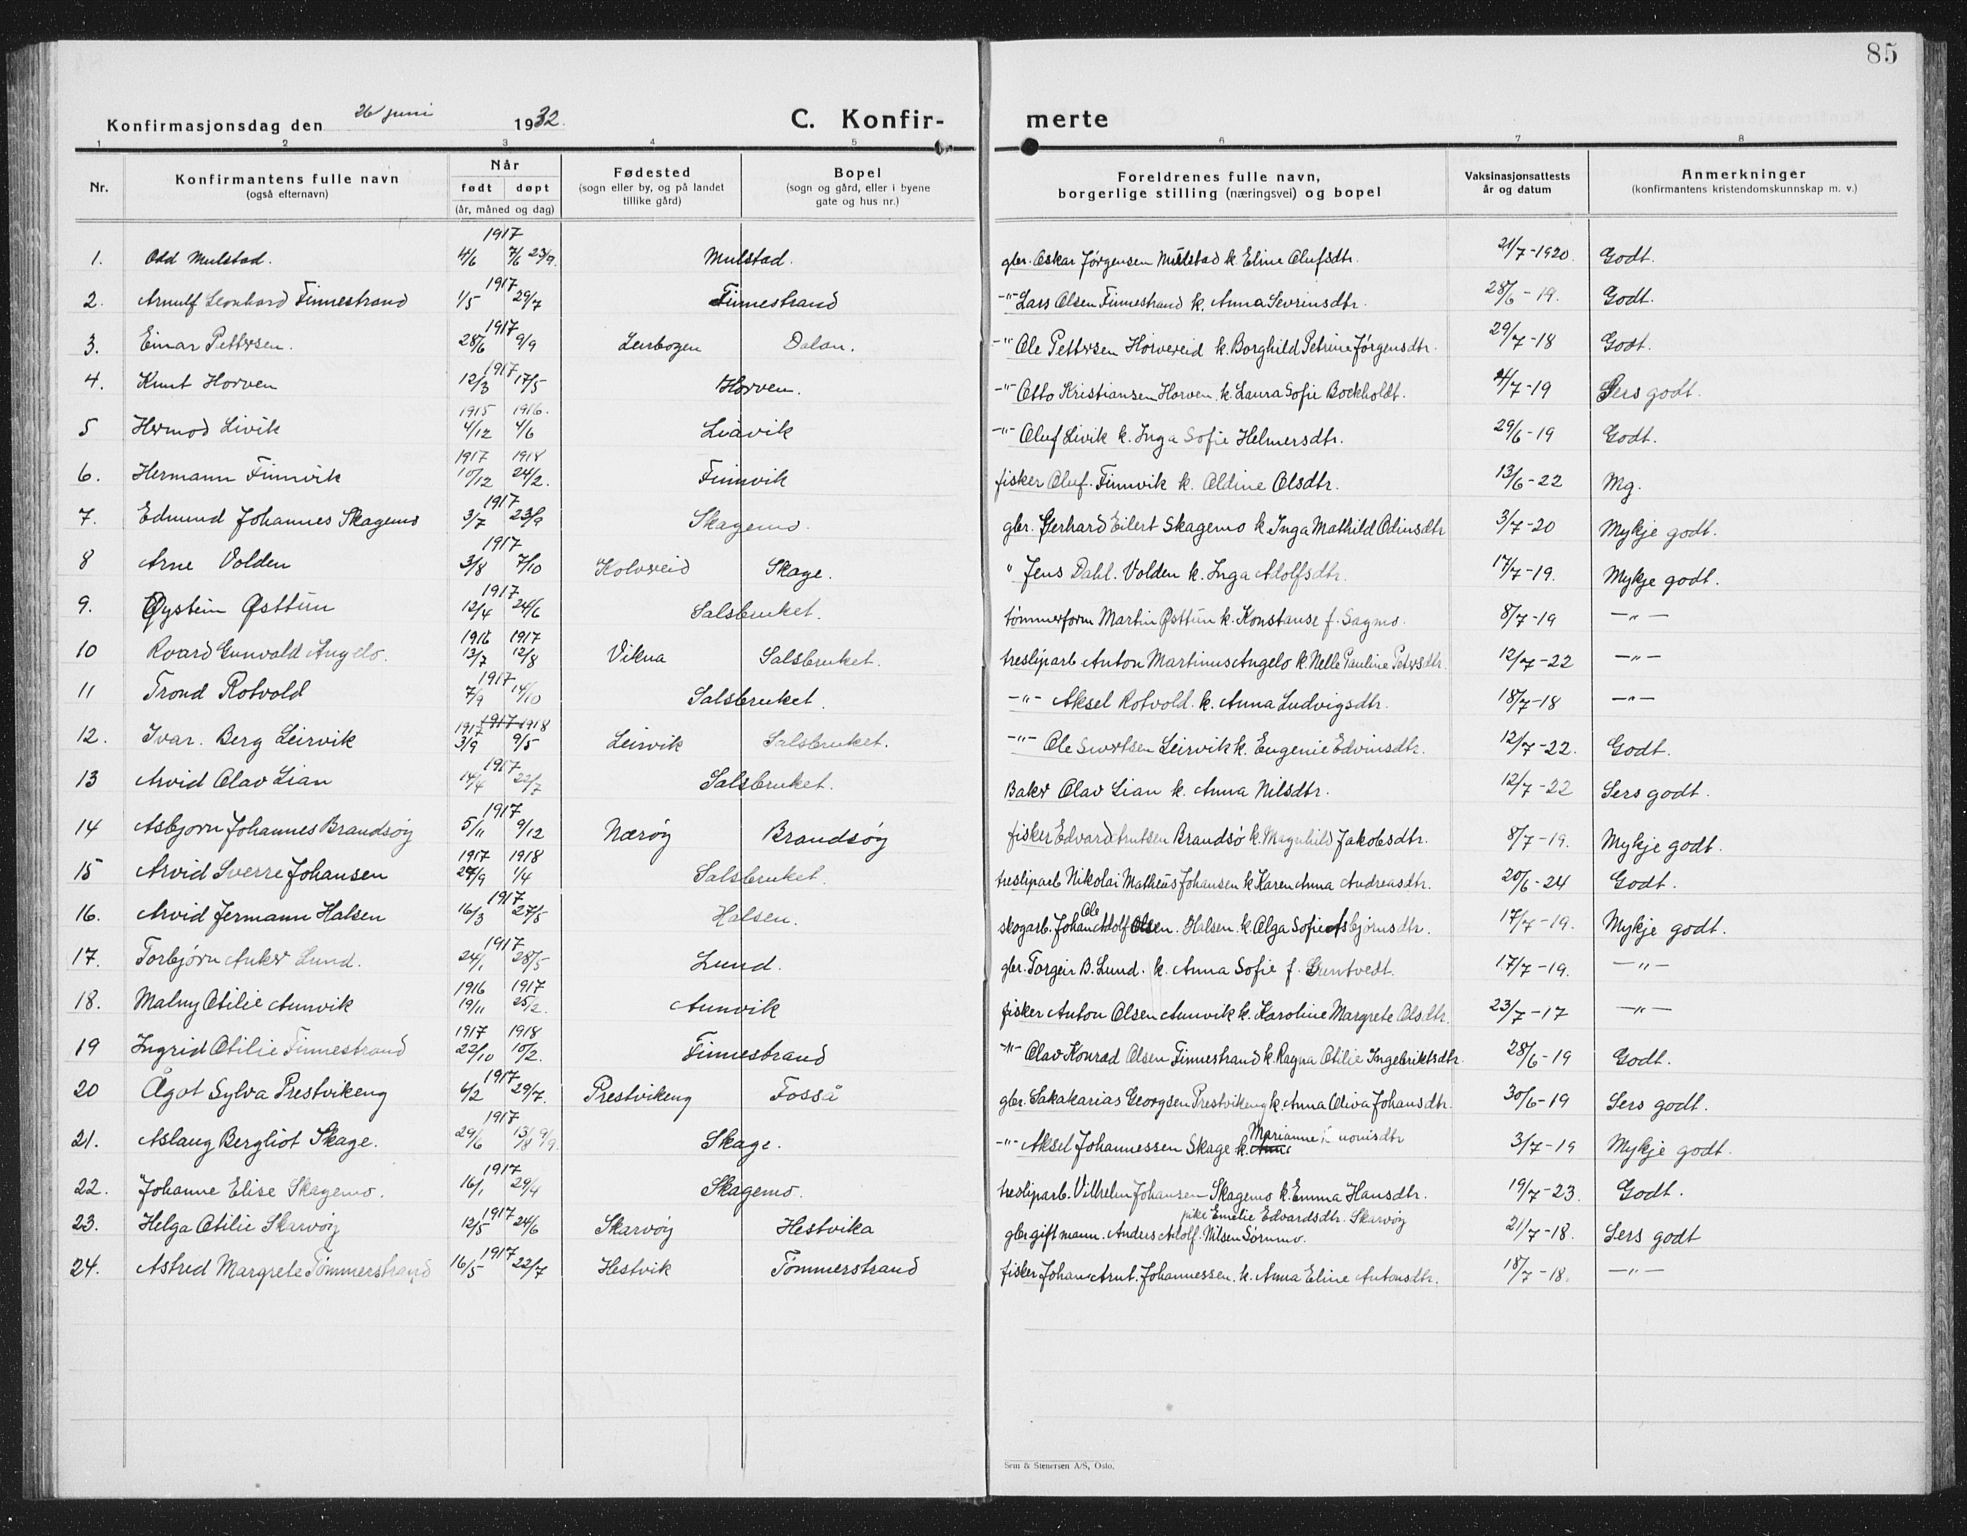 85
Konfirmasjonsdag den 26 juni 1932. C. Konfir- merte
1 2 3 4 5 6 7 8
Nr. Konfirmantens fulle navn (også efternavn) Når født døpt (år, måned og dag) Fødested (sogn eller by, og på landet tillike gård) Bopel (sogn og gård, eller i byene gate og hus nr.) Foreldrenes fulle navn, borgerlige stilling (næringsvei) og bopel Vaksinasjonsattests år og datum Anmerkninger (konfirmantens kristendomskunnskap m. v.)
1. Odd Mulstad. 1917 4/6 23/9. Mulstad. gbr. Oskar Jørgensen Mulstad k. Eline Olufsdtr. 21/7-1920. Godt.
2. Arnulf Leonhard Finnestrand 1917 1/5 29/7 Finnestrand -"- Lars Olsen Finnestrand k. Anna Sevrinsdtr. 28/6-19. Godt.
3. Einar Pettersen. 1917 28/6 9/9 Leirbogen Dalan. -"- Ole Pettersen Horvereid k. Borghild Petrine Jørgensdtr. 29/7-18 Godt.
4. Knut Horven 1917 12/3 17/5 Horven. -"- Otto Kristiansen Horven. k. Laura Sofie Bockholdt. 4/7-19 Sers godt.
5 Hermod Livik 1915 1916. 4/12 4/6 Liavik -"- Oluf Livik k. Inga Sofie Helmersdtr. 29/6-19 Godt.
6. Hermann Finnvik 1917 1918 10/12 24/2. Finnvik fisker Oluf. Finnvik k. Aldine Olsdtr. 13/6-22 Mg.
7. Edmund Johannes Skagemo 1917 3/7 23/9 Skagemo. gbr. Gerhard Eilert Skagemo k Inga Mathild Odinsdtr 3/7-20 Mykje godt.
8 Arne Volden 1917 3/8 7/10 Kolvereid Skage. " Jens Dahl. Volden k. Inga Adolfsdtr. 17/7-19. Mykje godt.
9. Øystein Østtun 1917 12/4 24/6 Salsbruket. tømmerform Martin Østtun k. Konstanse f. Sagmo. 8/7-19 -"-
10 Roard Gunvald Angelo. 1916 1917 13/7 12/8 Vikna Salsbruket. tresliparb Anton Martinus Angelo k. Nelle Pauline Petersdtr. 12/7-22 -"-
11 Trond Rotvold 1917 7/9 14/10 Salsbruket. -"- Aksel Rotvold. k. Anna Ludvigsdtr. 18/7-18 -"-
12. Ivar. Berg Leirvik 1917 1917 1918 3/9 9/5 Leirvik Salsbruket. -"- Ole Sivertsen Leirvik k. Eugenie Edvinsdtr. 12/7-22. Godt.
13 Arvid Olav Lian 1917 14/4 22/7 Salsbruket. Baker Olav Lian k. Anna Nilsdtr. 12/7-22 Sers godt.
14 Asbjørn Johannes Brandsøy 1917 5/11 9/12 Nærøy Brandsøy fisker Edvard Brandsø k. Magnhild Jakobsdtr. 8/7-19. Mykje godt.
15 Arvid Sverre Johansen 1917 1918 27/9 1/4 Salsbruket. tresliparb Nikolai Mathias Johansen k Karen Anna Andreasdtr. 20/6-24 Godt.
16. Arvid Jermann Halsen 1917 16/3 27/5 Halsen. skogarb. Johan Ole Adolf Olsen. Halsen. k. Olga Sofie Asbjørnsdtr. 17/7-19. Mykje godt.
17. Torbjørn Anker Lund. 1917 24/1 28/5 Lund. gbr. Torgeir B. Lund. k. Anna Sofie f. Gruntvedt. 17/7-19. -"-
18. Malmy Otilie Aunvik 1916 1917 19/11 25/2. Aunvik fisker Anton Olsen Aunvik k. Karoline Margrete Olsdtr. 23/7-17 -"-
19 Ingrid Otilie Finnestrand 1917 1918 22/10 10/2. Finnestrand -"- Olav Konrad Olsen Finnestrand k. Ragna Otilie Ingebriktsdtr. 28/6-19 Godt.
20 Ågot Sylva Prestvikeng 1917 6/2 29/7. Prestvikeng Fosså gbr. Sakakarias Georgsen Prestvikeng k. Anna Oliva Johansdtr. 30/6-19 Sers godt.
21. Aslaug Bergliot Skage. 1917 29/6 13/8 9/9. Skage. -"- Aksel Johannessen Skage k. Anne Marianne 3/7-19 Mykje godt.
22. Johanne Elise Skagemo. 1917 16/1 29/4 Skagemo. tresliparb. Vilhelm Johansen Skagemo k. Emma Hansdtr. 19/7-23. Godt.
23. Helga Otilie Skarvøy 1917 12/5 24/6 Skarvøy Hestvika pike Emelie Edvardsdtr. Skarvøy gbr gift mann. Anders Adolf. Nilsen Sørmo. 21/7-18. Sers godt
24. Astrid Margrete Tømmerstrand 1917 16/5 22/7 Hestvik Tømmerstrand fisker Johan Arnt. Johannessen. k. Anna Eline Antonsdtr. 18/7-18. -"-
Sem & Stenersen A/S, Oslo.